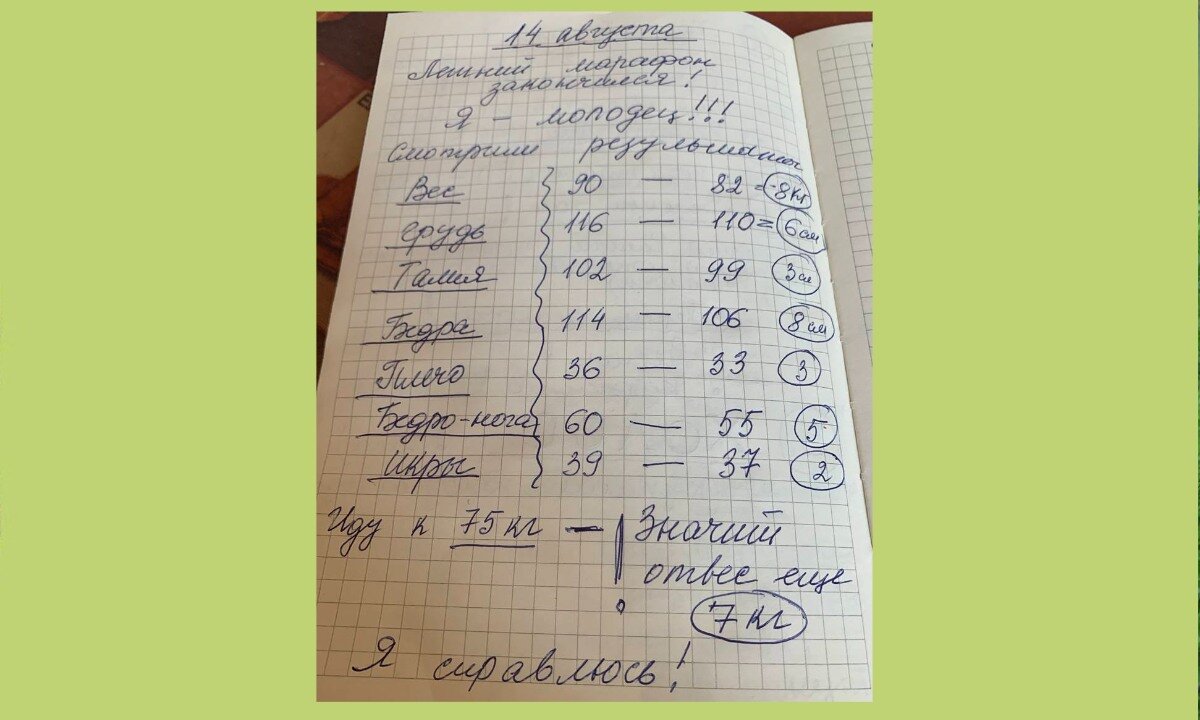 14 августа
Летний марафон
закончился!
Я - молодец!!!
Смотрим результаты
Вес 90 — 82 = -8кг
грудь 116 — 110 = 6см
Талия 102 — 99 3см
Бедра 114 — 106 8см
Плечо 36 — 33 3
Бедро-нога 60 — 55 5
Икры 39 — 37 2
Иду к 75 кг — ! Значит
отвес еще
7 кг
Я справлюсь!